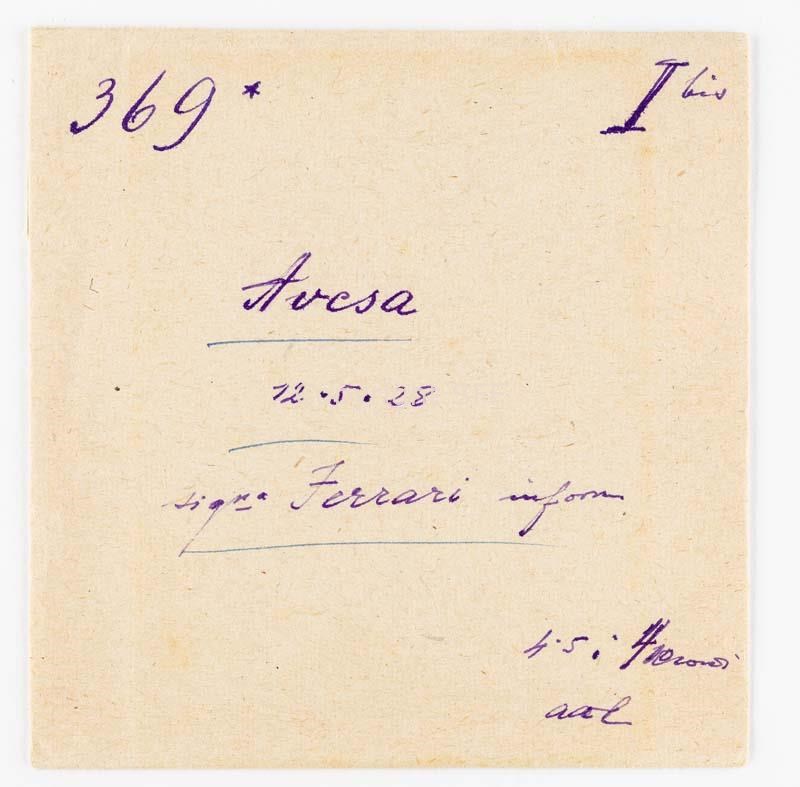 369* I bis
Avesa
12.5.28
sigra Ferrari inform
4.5.
aal